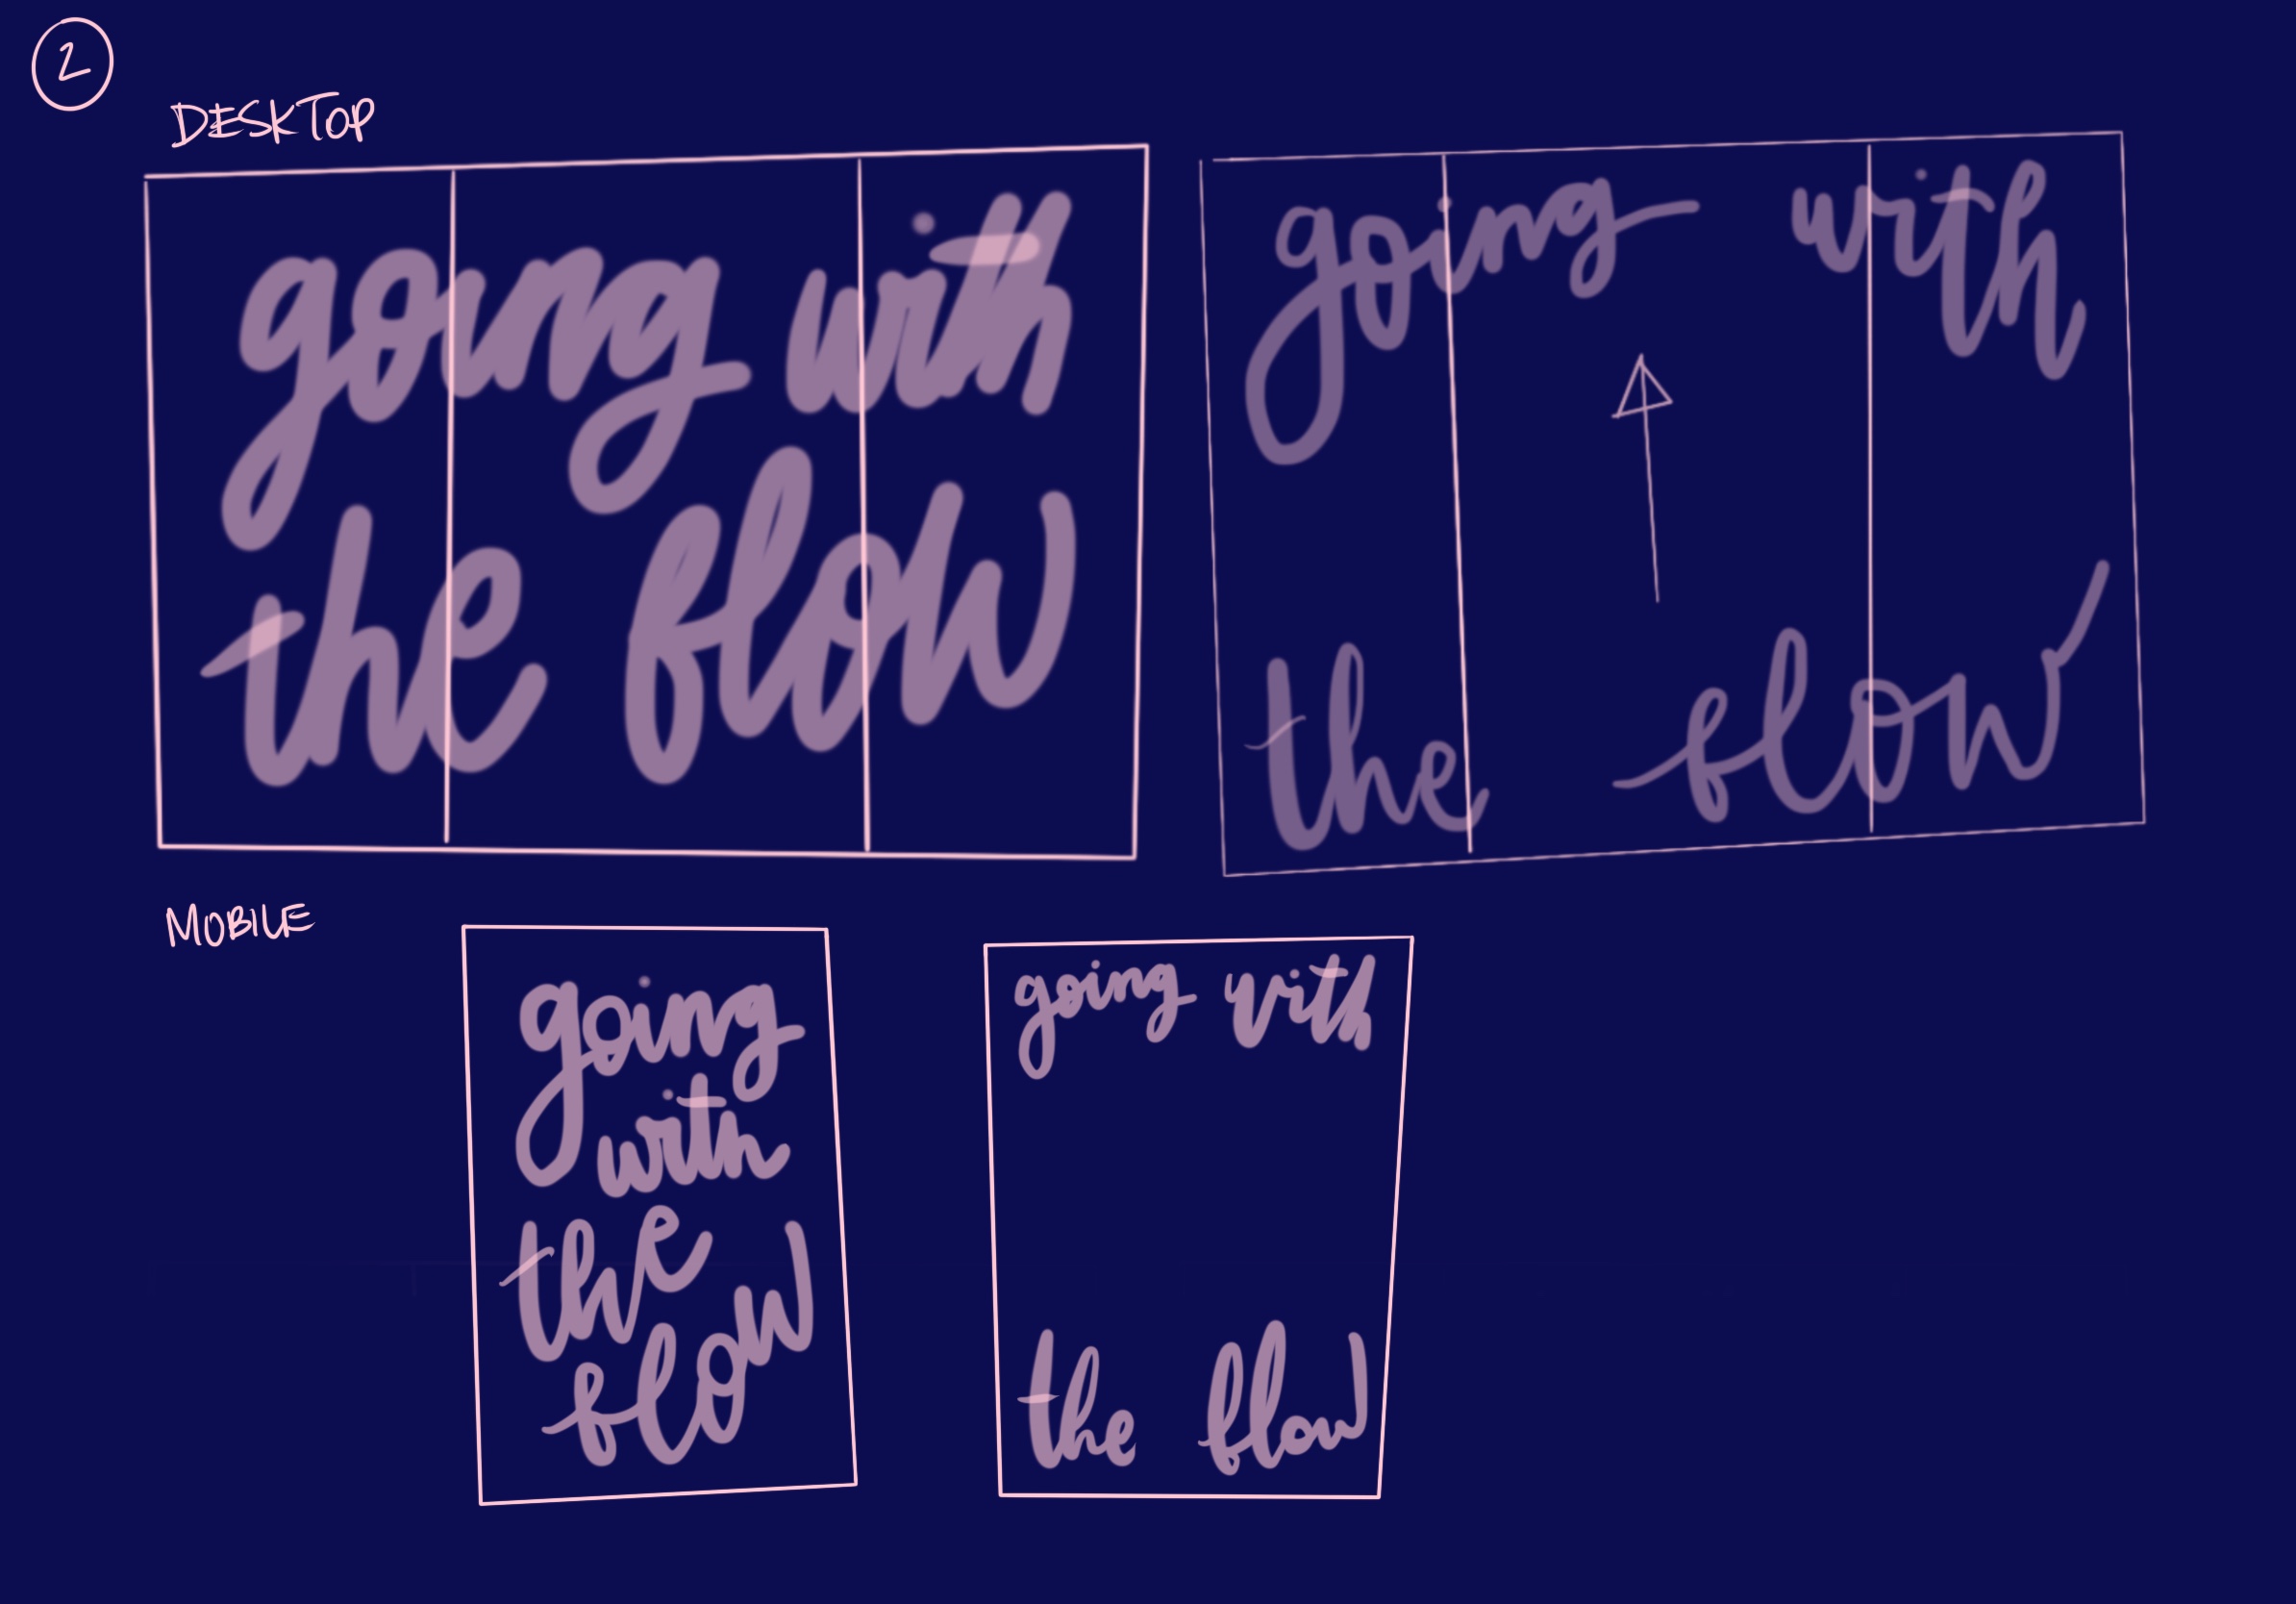 2
DESKTOP
going with
the flow
going with
the flow
MOBILE
going
with
the
flow
going with
the flow